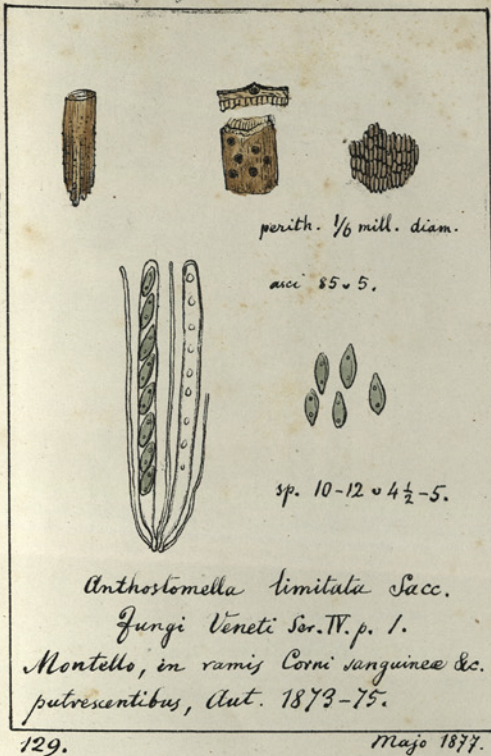 perith. 1/6 mill. diam.
asci 85 ⌣ 5.
sp. 10-12 ⌣ 4 1/2-5.
Anthostomella limitata Sacc.
Fungi Veneti Ser. IV. p. 1.
Montello, in ramis Corni sanguineæ &c.
putrescentibus, Aut. 1873-75.
129. Majo 1877.